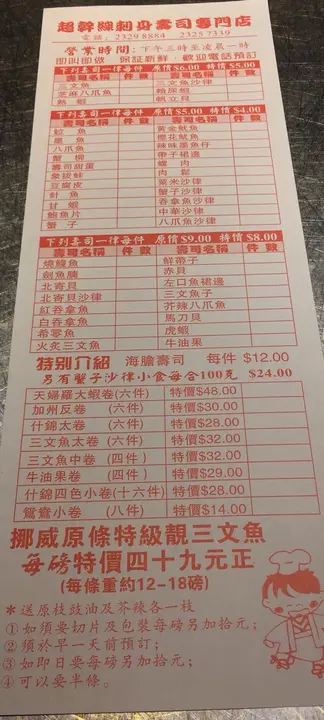 超幹線刺身壽司專門店
電話：2329 8884　2325 7339
營業時間：下午三時至凌晨一時
即叫即做　保証新鮮・歡迎電話預訂
下列壽司一律每件　原價$6.00　特價$5.00
壽司名稱　件數　壽司名稱　件數
三文魚　三文魚沙律
芝麻八爪魚　賴尿蝦
熟蝦　帆立貝
下列壽司一律每件　原價$5.00　特價$4.00
壽司名稱　件數　壽司名稱　件數
魷魚　黃金魷魚
墨魚　櫻花魷魚
八爪魚　辣味墨魚仔
蟹柳　帶子裙邊
壽司甜蛋　螺肉
象拔蚌　肉鬆
豆腐皮　粟米沙律
針魚　蟹子沙律
甘蝦　吞拿魚沙律
鯡魚片　中華沙律
蟹子　八爪魚沙律
下列壽司一律每件　原價$9.00　特價$8.00
壽司名稱　件數　壽司名稱　件數
燒鰻魚　鮮帶子
劍魚腩　赤貝
北寄貝　左口魚裙邊
北寄貝沙律　三文魚子
紅吞拿魚　芥辣八爪魚
白吞拿魚　馬刀貝
希靈魚　虎蝦
火炙三文魚　牛油果
特別介紹　海膽壽司　每件 $12.00
另有蟹子沙律小食每合100克　$24.00
天婦羅大蝦卷(六件)　特價$48.00
加州反卷　(六件)　特價$30.00
什錦太卷　(六件)　特價$28.00
三文魚太卷　(六件)　特價$32.00
三文魚中卷　(四件)　特價$32.00
牛油果卷　(四件)　特價$29.00
什錦四色小卷(十六件)　特價$28.00
鴛鴦小卷　(八件)　特價$14.00
挪威原條特級靚三文魚
每磅特價四十九元正
(每條重約12-18磅)
＊送原枝豉油及芥辣各一枝
①如須要切片及包裝每磅另加拾元；
②須於早一天前預訂；
③如即日要每磅另加拾元；
④可以要半條。